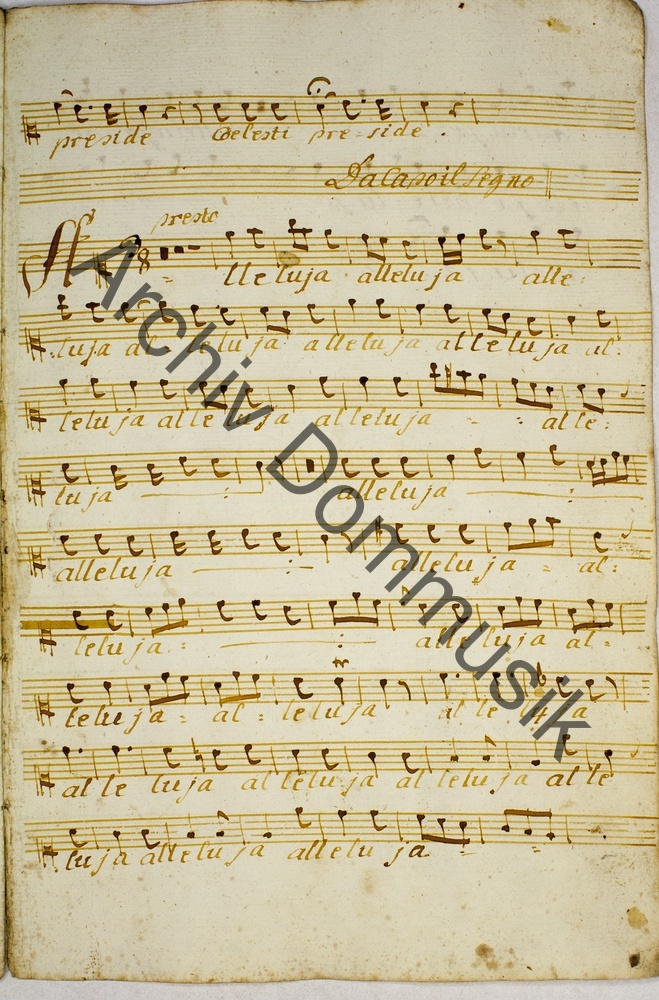 preside Celesti pre-side.
Da Capo il segno
presto
A = lleluja alleluja alle:
luja al leluja alleluja alleluja al:
leluja alleluja alleluja - : alle:
luja : alleluja :
alleluja : alleluja = al:
leluja : : alleluja al-
leluja = al = leluja tr al le lu ja
al le luja alleluja alleluja alle
luja alleluja alleluja = =
Archiv Dommusik